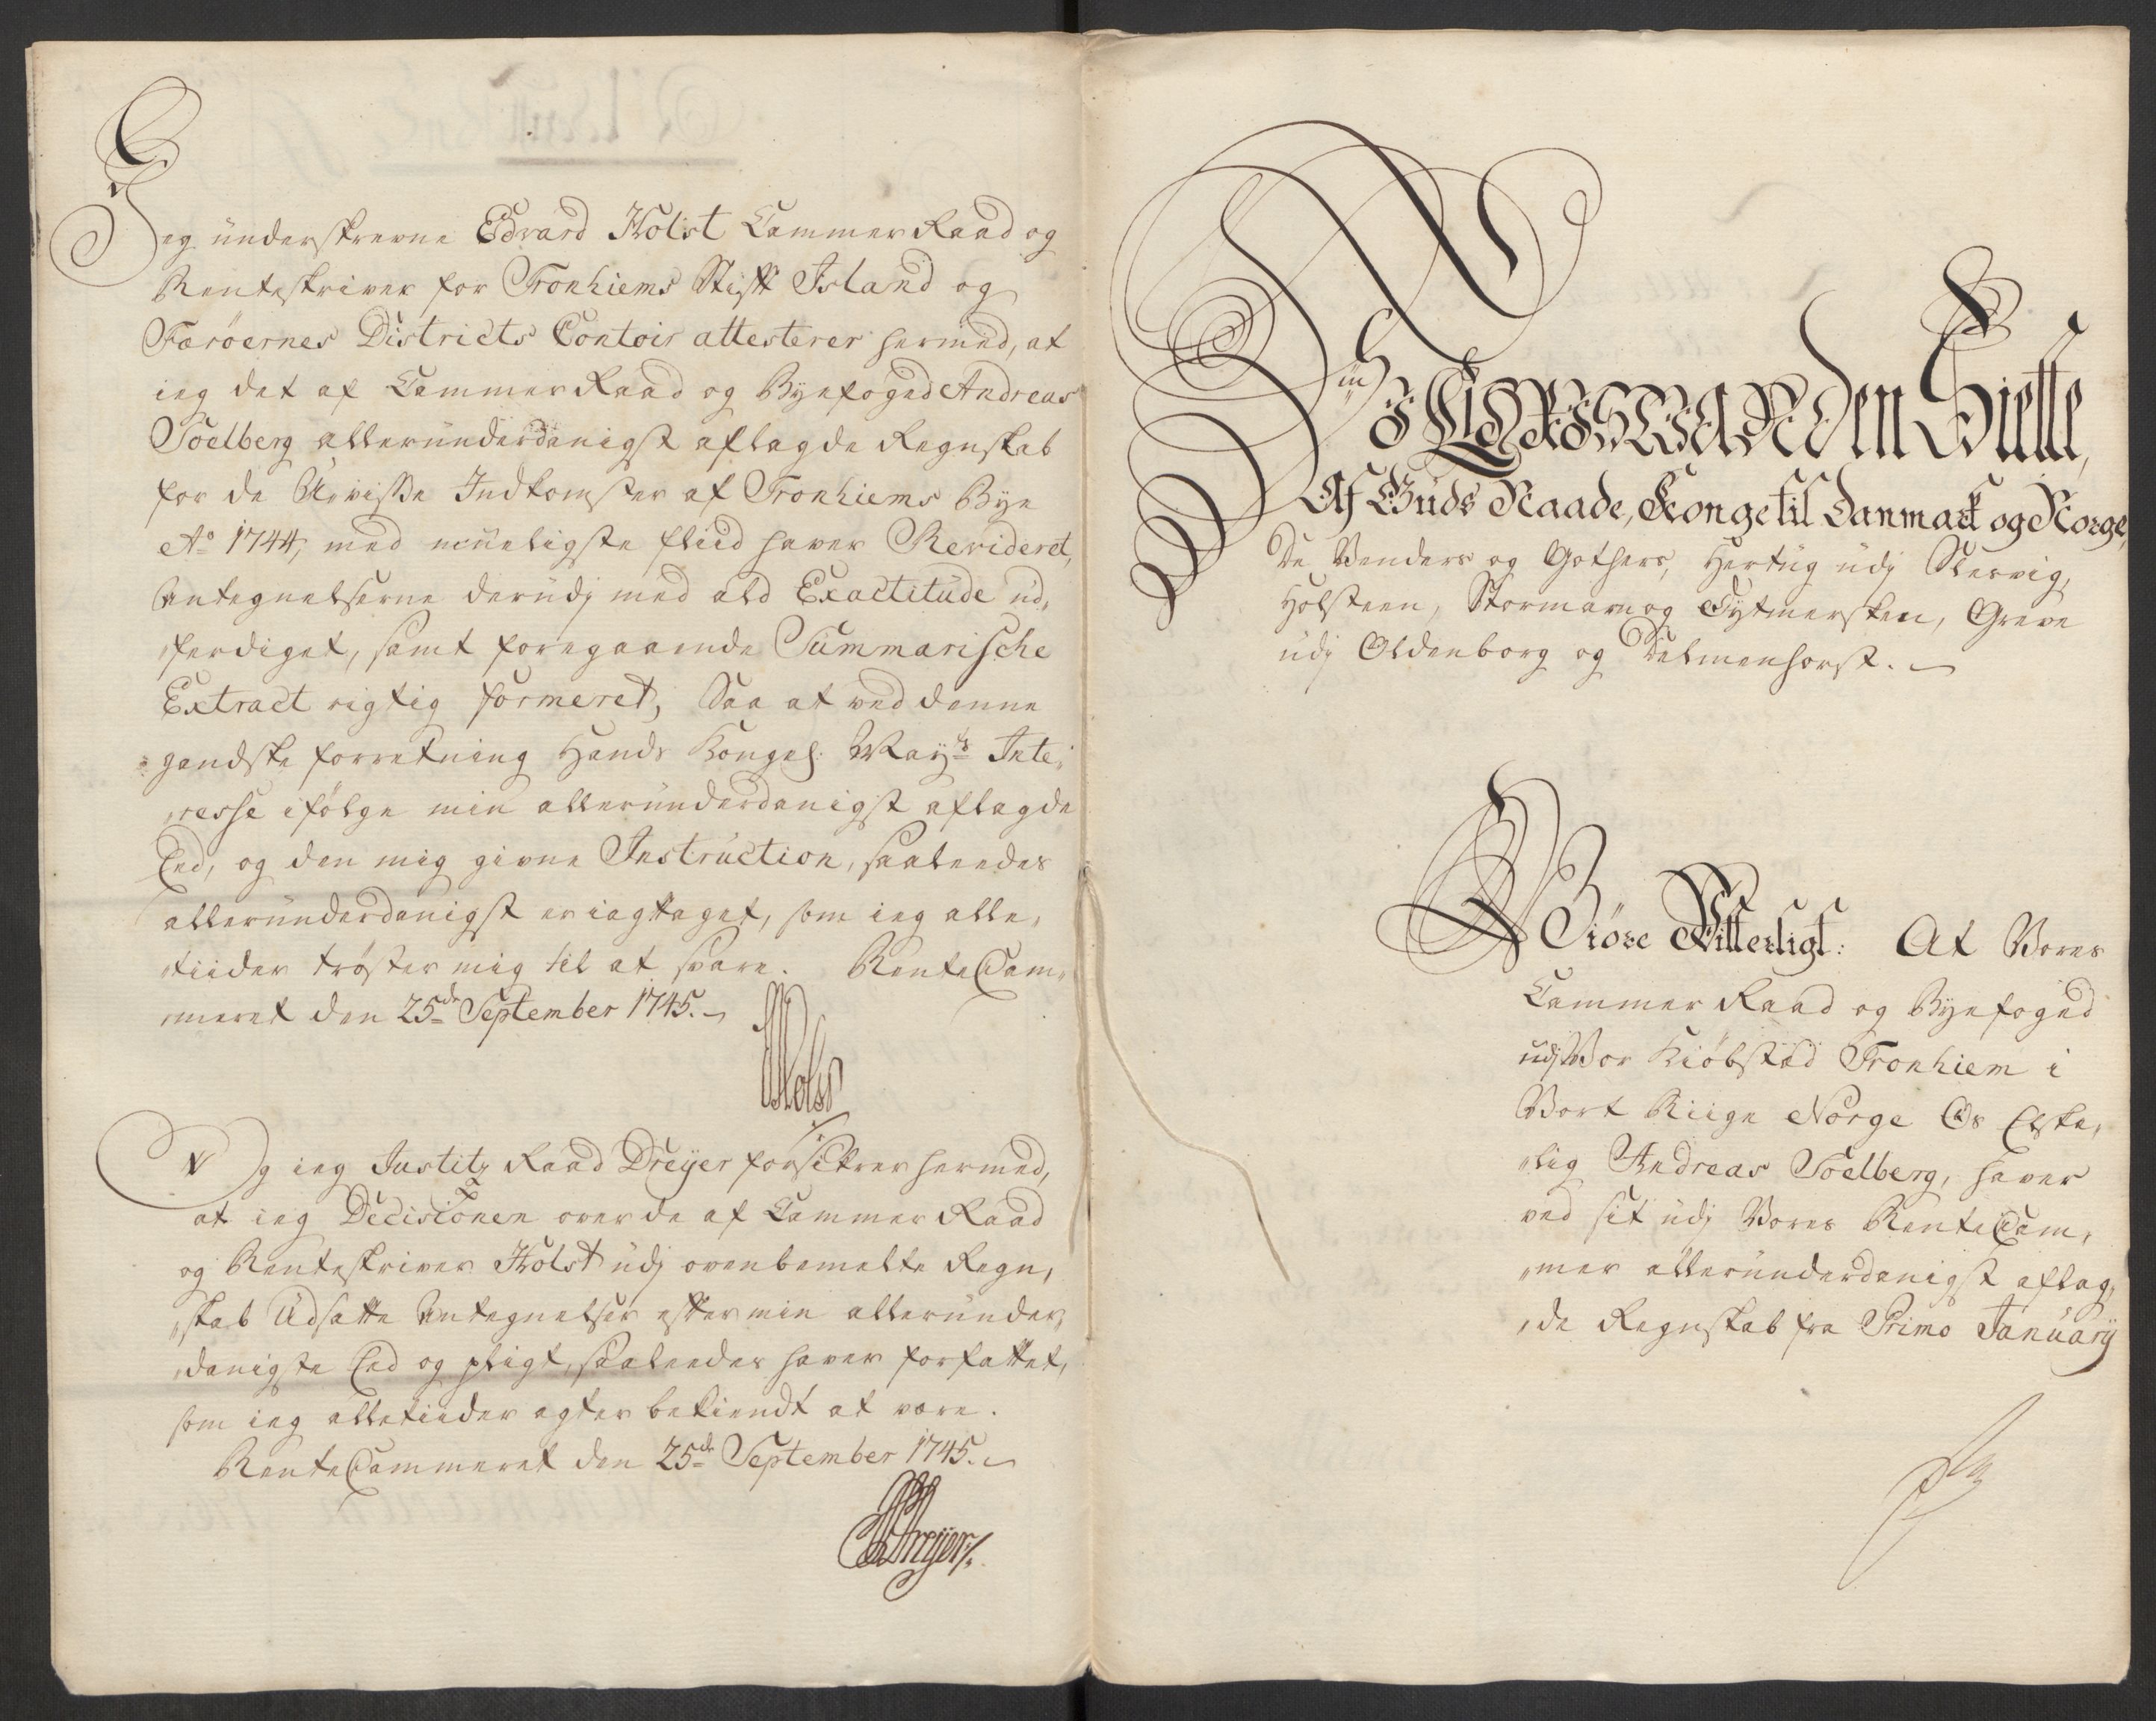 Jeg underskrevne Edvard Holst Cammer Raad og
Renteskriver for Tronhiems Stift Island og
Færøernes Districts Contoir attesterer hermed, at
ieg det af Cammer Raad og Byefoged Andreas
Soelberg allerunderdanigst aflagde Regnskab
for de Uvisse Indkomster af Tronhiems Bye
Ao 1744, med mueligste fliid haver Revideret,
Antegnelserne derudj med ald Exactitude ud,
„ferdiget, samt foregaaende Summarische
Extract rigtig formeret, Saa at ved denne
gandske forretning Hands Kongel: May:ts Inte,
„resse ifølge min allerunderdanigst aflagde
Eed, og den mig givne Instruction, saaleedes
allerunderdanigst er iagttaget, som ieg alle,
„tiider trøster mig til at svare. RenteCam,
„meret den 25de September 1745.
Holst
Og ieg Justitz Raad Dreyer forsikrer hermed,
at ieg Decisionen over de af Cammer Raad
og Renteskriver Holst udj ovenbemelte Regn,
„skab Udsatte Antegnelser efter min allerunder,
„danigste Eed og pligt, saaleedes haver forfattet,
som ieg alletiider agter bekiendt at være.
RenteCammeret den 25de September 1745.
Dreyer
Wii
CHRISTIAN den Siette,
Af Guds Naade, Konge til Danmark og Norge,
De Venders og Gothers, Hertug udj Slesvig,
Holsteen, Stormarn og Dytmersken, Greve
udj Oldenborg og Delmenhorst.
Giøre Vitterligt: At Vores
Cammer Raad og Byefoged
udj Vor Kiøbsted Tronhiem i
Vort Riige Norge Os Elske,
„lig Andreas Soelberg, haver
ved sit udj Vores RenteCam,
„mer allerunderdanigst aflag,
„de Regnskab fra Primo Januarij